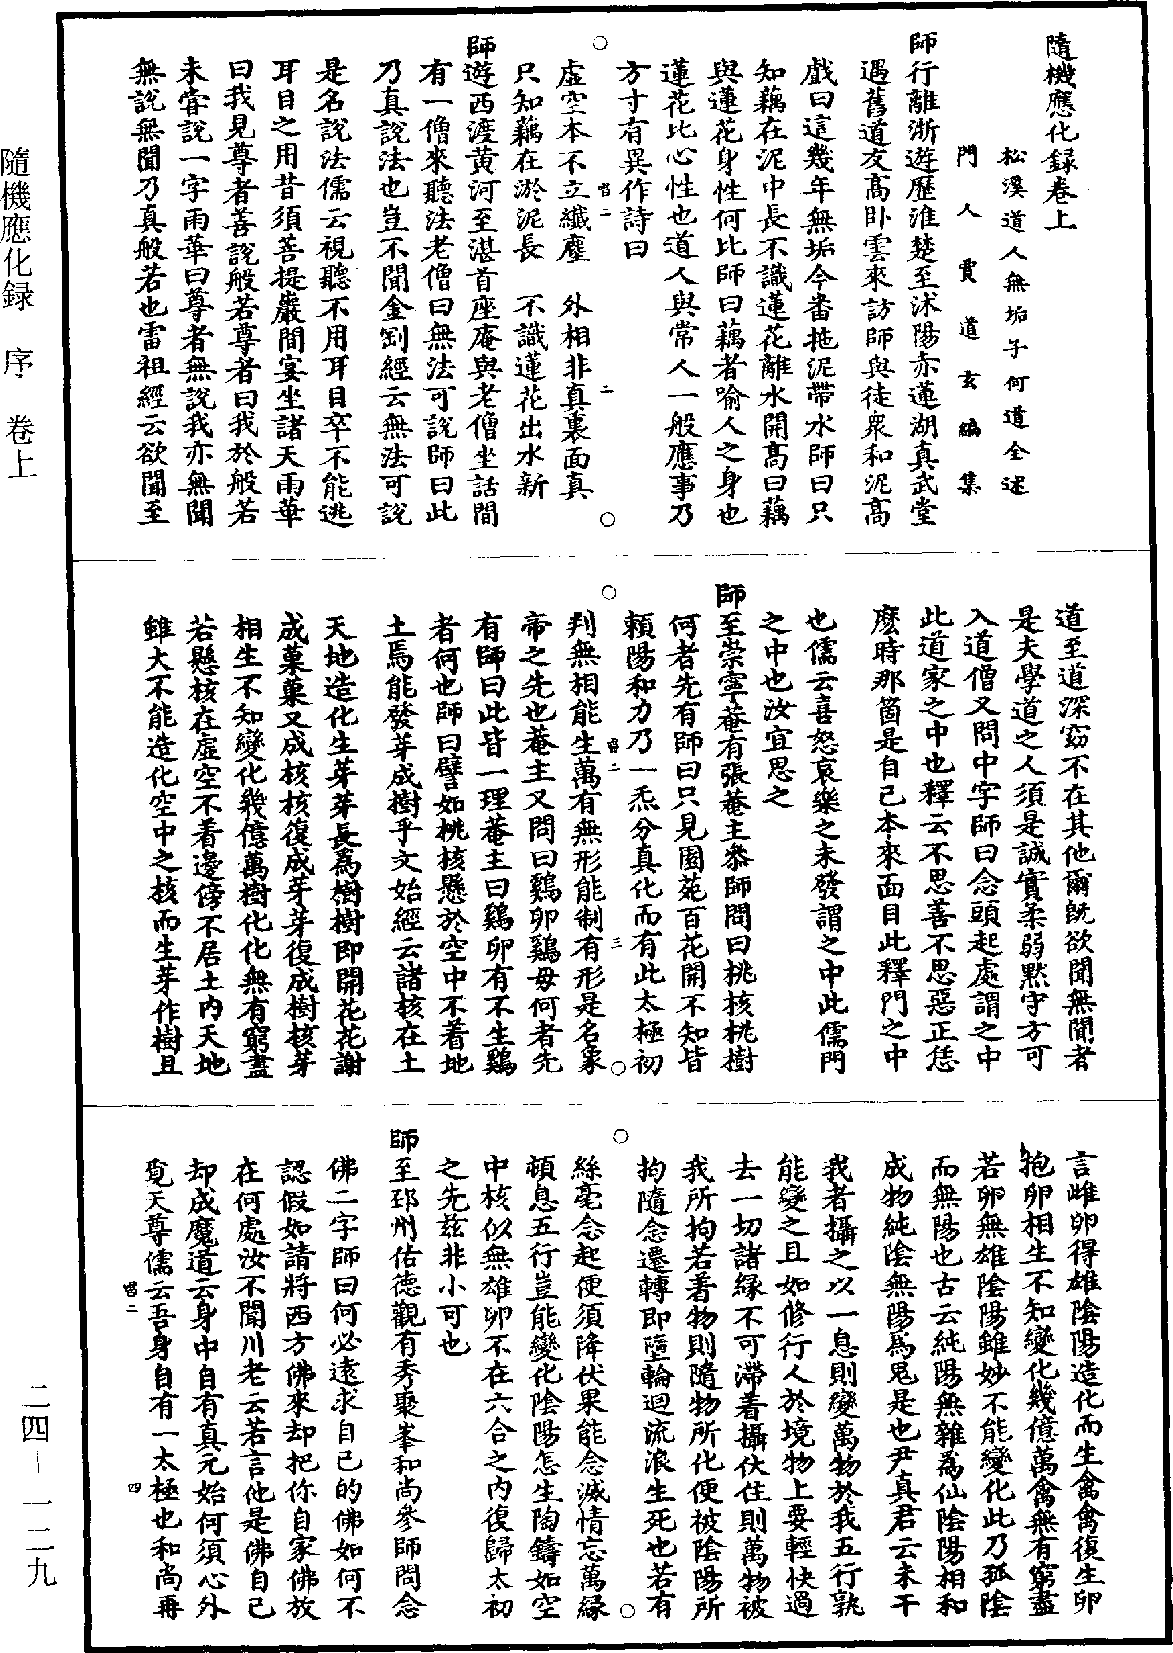 隨機應化録卷上
松溪道人無垢子何道全述
門人賈道玄編集
師行離浙遊歷淮楚至沭陽赤蓮湖真武堂
遇舊道友高卧雲來訪師與徒衆和泥高
戲曰這幾年無垢今番拖泥帶水師曰只
知藕在泥中長不識蓮花離水開高曰藕
與蓮花身性何比師曰藕者喻人之身也
蓮花比心性也道人與常人一般應事乃
方寸有異作詩曰
虛空本不立纖塵　外相非真裏面真
只知藕在淤泥長　不識蓮花出水新
師遊西渡黄河至湛首座庵與老僧坐話間
有一僧來聽法老僧曰無法可說師曰此
乃真說法也豈不聞金剛經云無法可說
是名說法儒云視聽不用耳目卒不能逃
耳目之用昔須菩提巖間宴坐諸天雨華
曰我見尊者善說般若尊者曰我於般若
未甞說一字雨華曰尊者無說我亦無聞
無說無聞乃真般若也雷祖經云欲聞至
道至道深窈不在其他爾旣欲聞無聞者
是夫學道之人須是誠實柔弱黙守方可
入道僧又問中字師曰念頭起處謂之中
此道家之中也釋云不思善不思惡正恁
麽時那箇是自己本來面目此釋門之中
也儒云喜怒哀樂之未發謂之中此儒門
之中也汝宜思之
師至崇寧菴有張菴主叅師問曰桃核桃樹
何者先有師曰只見園苑百花開不知皆
賴陽和力乃一炁分真化而有此太極初
判無相能生萬有無形能制有形是名象
帝之先也菴主又問曰鷄卵鷄母何者先
有師曰此皆一理菴主曰鷄卵有不生鷄
者何也師曰譬如桃核懸於空中不着地
土焉能發芽成樹乎文始經云諸核在土
天地造化生芽芽長爲樹樹即開花花謝
成菓菓又成核核復成芽芽復成樹核芽
相生不知變化幾億萬樹化化無有窮盡
若懸核在虛空不着邊傍不居土内天地
雖大不能造化空中之核而生芽作樹且
言雌卵得雄陰陽造化而生禽禽復生卵
抱卵相生不知變化幾億萬禽無有窮盡
若卵無雄陰陽雖妙不能變化此乃孤陰
而無陽也古云純陽無雜爲仙陰陽相和
成物純陰無陽爲鬼是也尹真君云未干
我者攝之以一息則變萬物於我五行孰
能變之且如修行人於境物上要輕快過
去一切諸緣不可滯着攝伏住則萬物被
我所拘若着物則隨物所化便被陰陽所
拘隨念遷轉即墮輪迴流浪生死也若有
絲毫念起便須降伏果能念滅情忘萬緣
頓息五行豈能變化陰陽怎生陶鑄如空
中核似無雄卵不在六合之内復歸太初
之先兹非小可也
師至邳州佑德觀有秀聚峯和尚參師問念
佛二字師曰何必遠求自己的佛如何不
認假如請將西方佛來却把你自家佛放
在何處汝不聞川老云若言他是佛自己
却成魔道云身中自有真元始何須心外
覔天尊儒云吾身自有一太極也和尚再
隨機應化録　序　卷上
二四—一二九